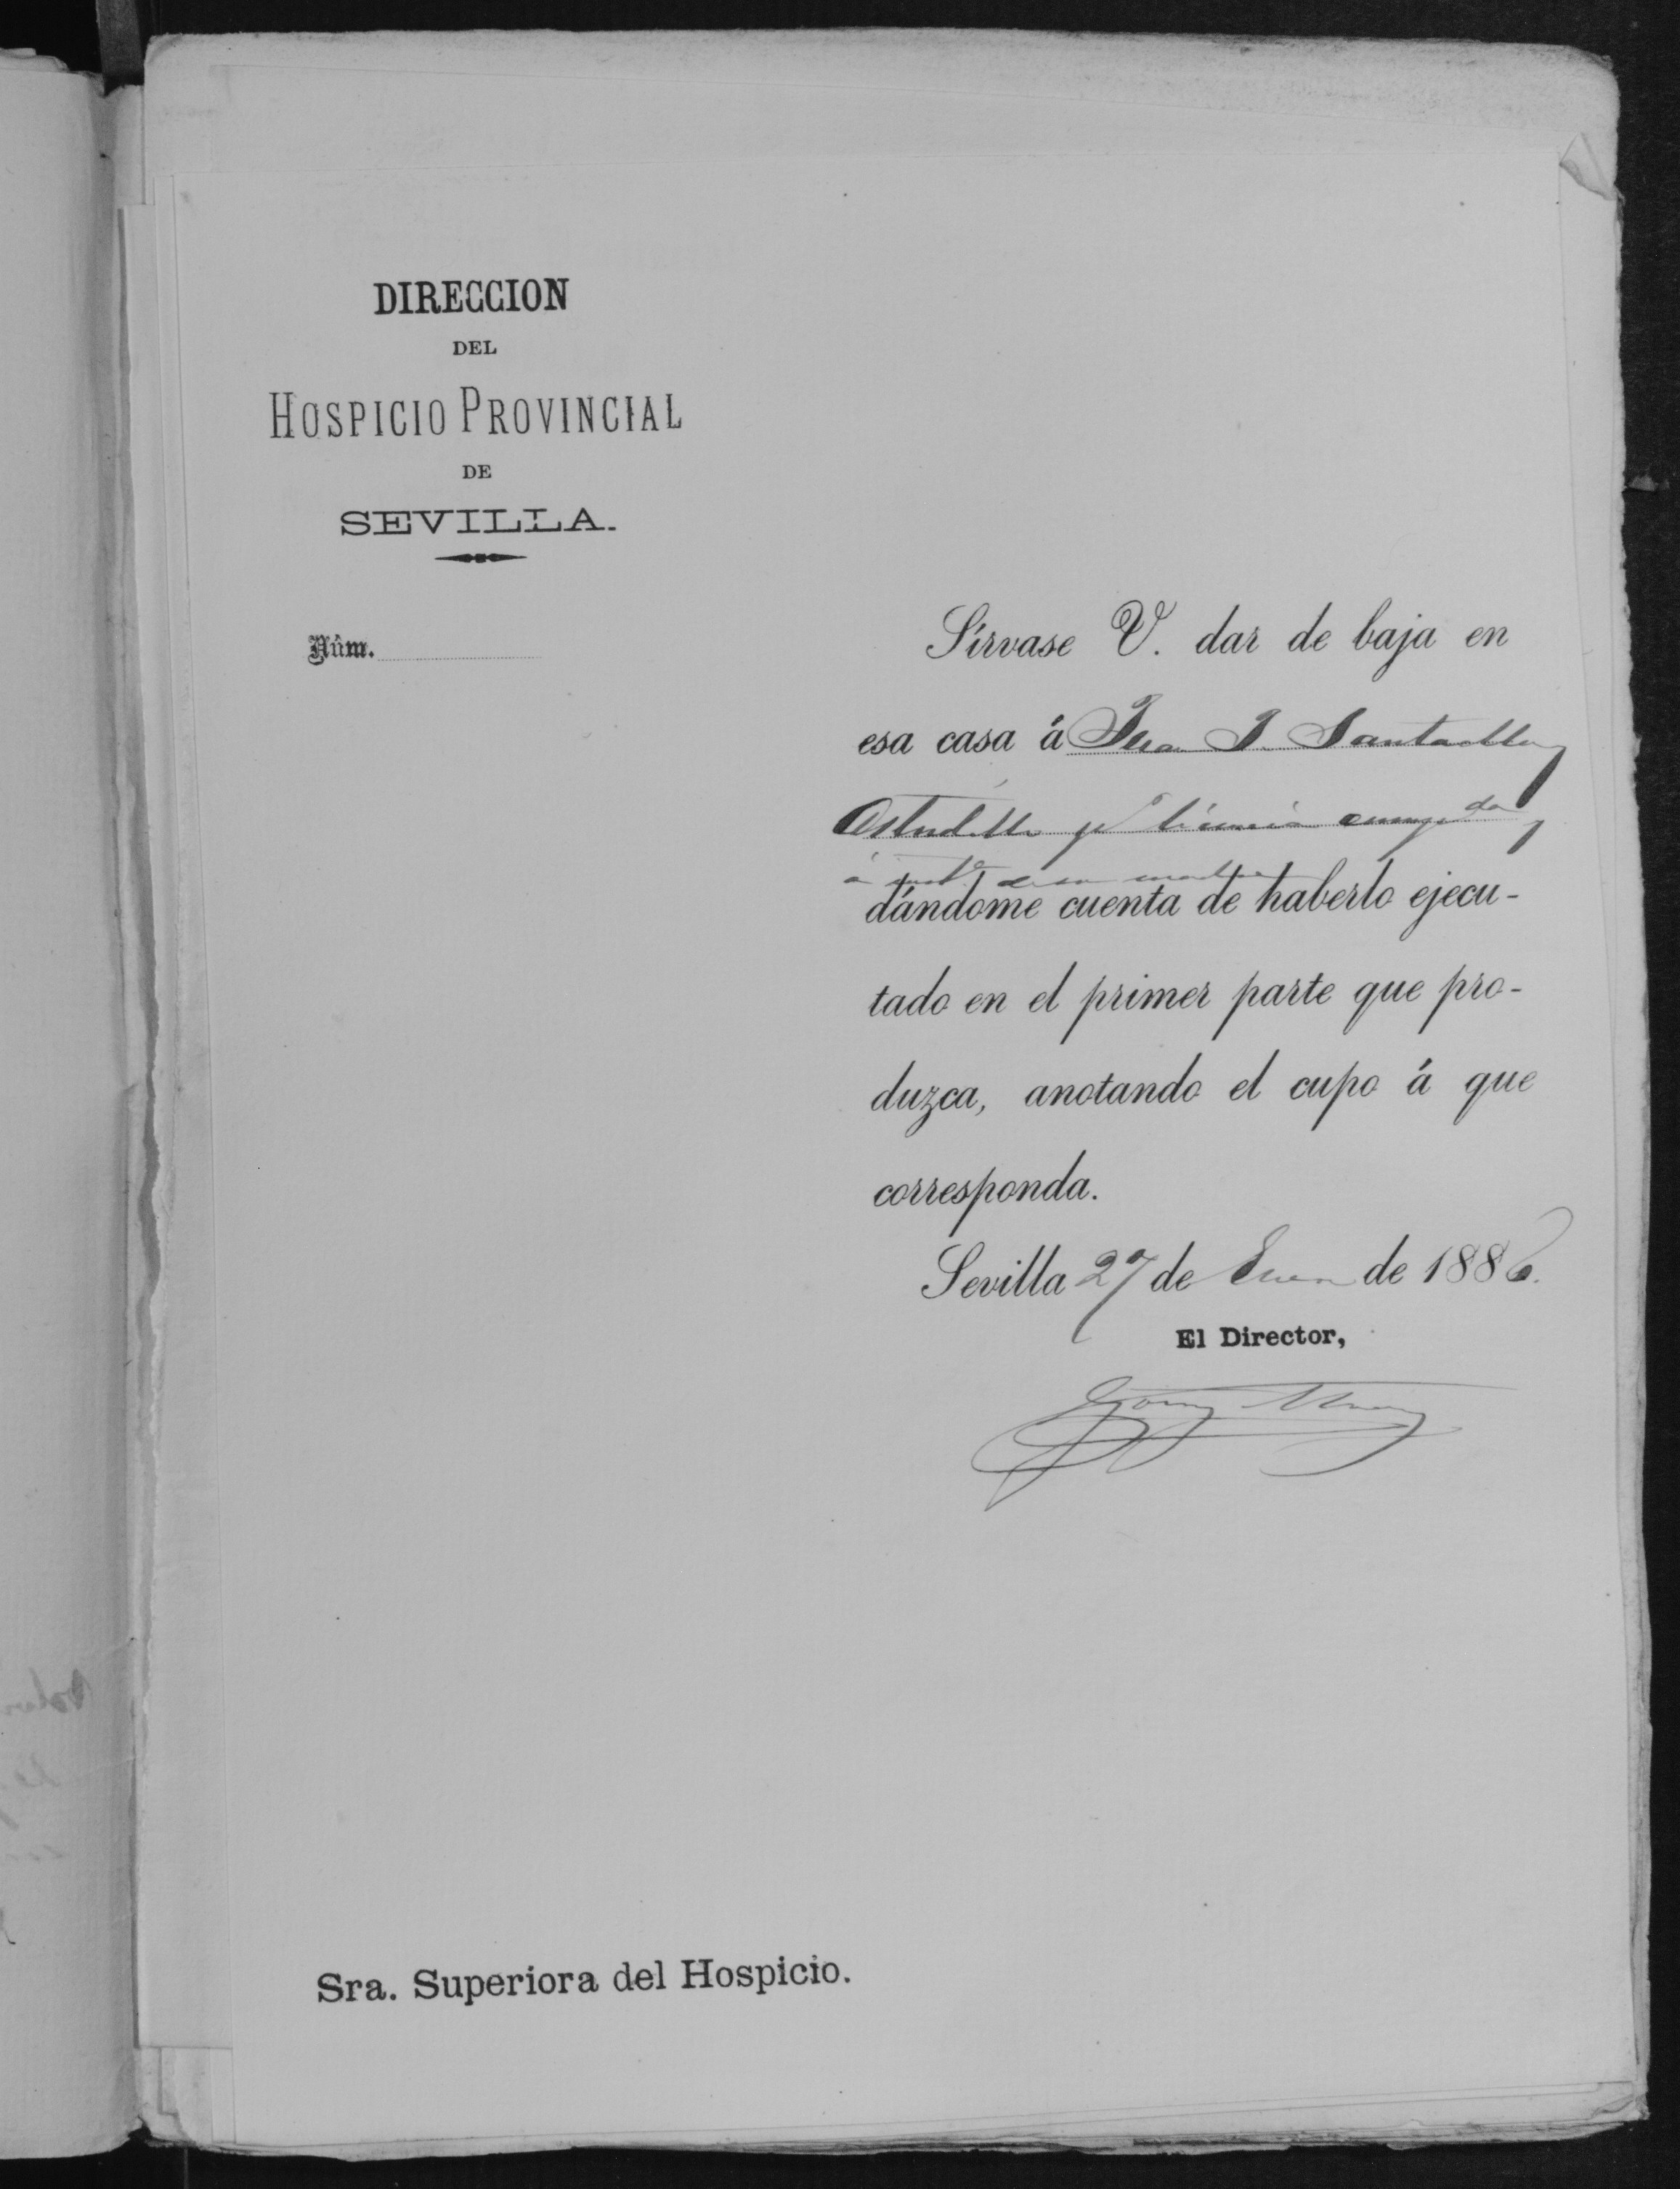 DIRECCION
DEL
HOSPICIO PROVINCIAL
DE
SEVILLA.
Núm.
Sírvase V. dar de baja en
esa casa á J. Santaella
Astudillo licencia
á de su madre
dándome cuenta de haberlo ejecu-
tado en el primer parte que pro-
duzca, anotando el cupo á que
corresponda.
Sevilla 27 de Enero de 1886.
El Director,
Sra. Superiora del Hospicio.